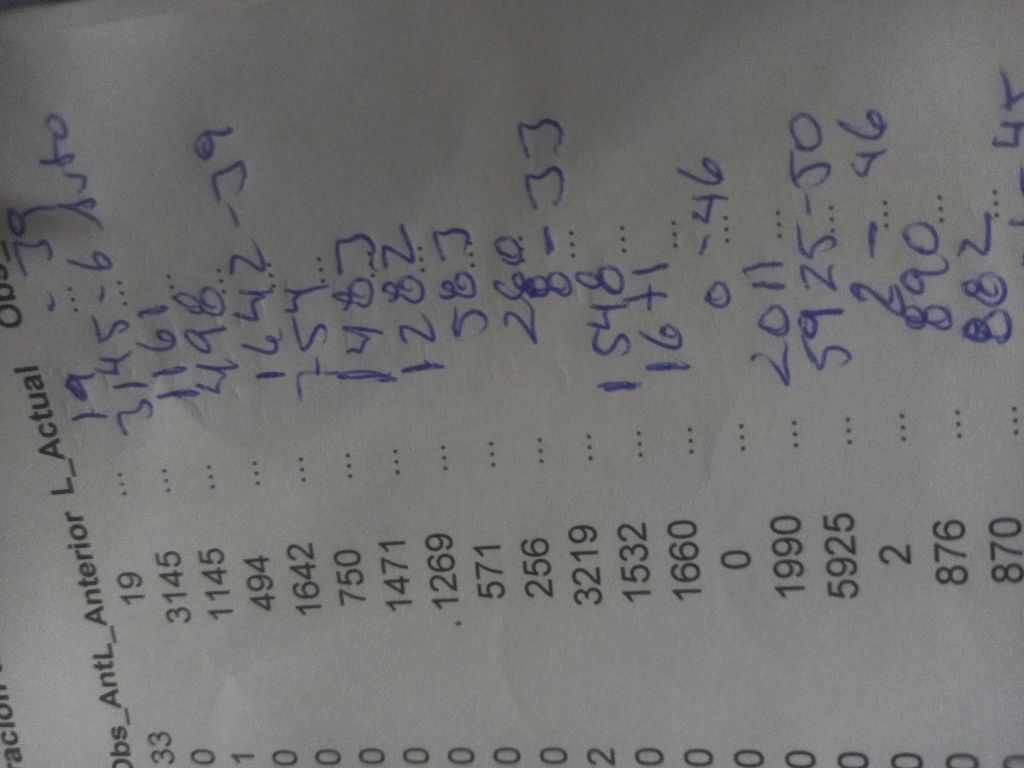 Obs_AntL_Anterior L_Actual Obs_
33 19 ... 19 ... - 39
0 3145 ... 3145 - 6 ...
1 1145 ... 1161 ...
0 494 ... 498 ...
0 1642 ... 1642 - 39
0 750 ... 754 ...
0 1471 ... 1483 ...
0 .1269 ... 1282 ...
0 571 ... 583 ...
0 256 ... 260 ...
2 3219 ... 8 - 33 ...
0 1532 ... 1548 ...
0 1660 ... 1671 ...
0 0 ... 0 - 46 ...
0 1990 ... 2011 ...
0 5925 ... 5925 - 50 ...
0 2 ... 2 - 46
0 876 ... 890 ...
0 870 ... 882 ...